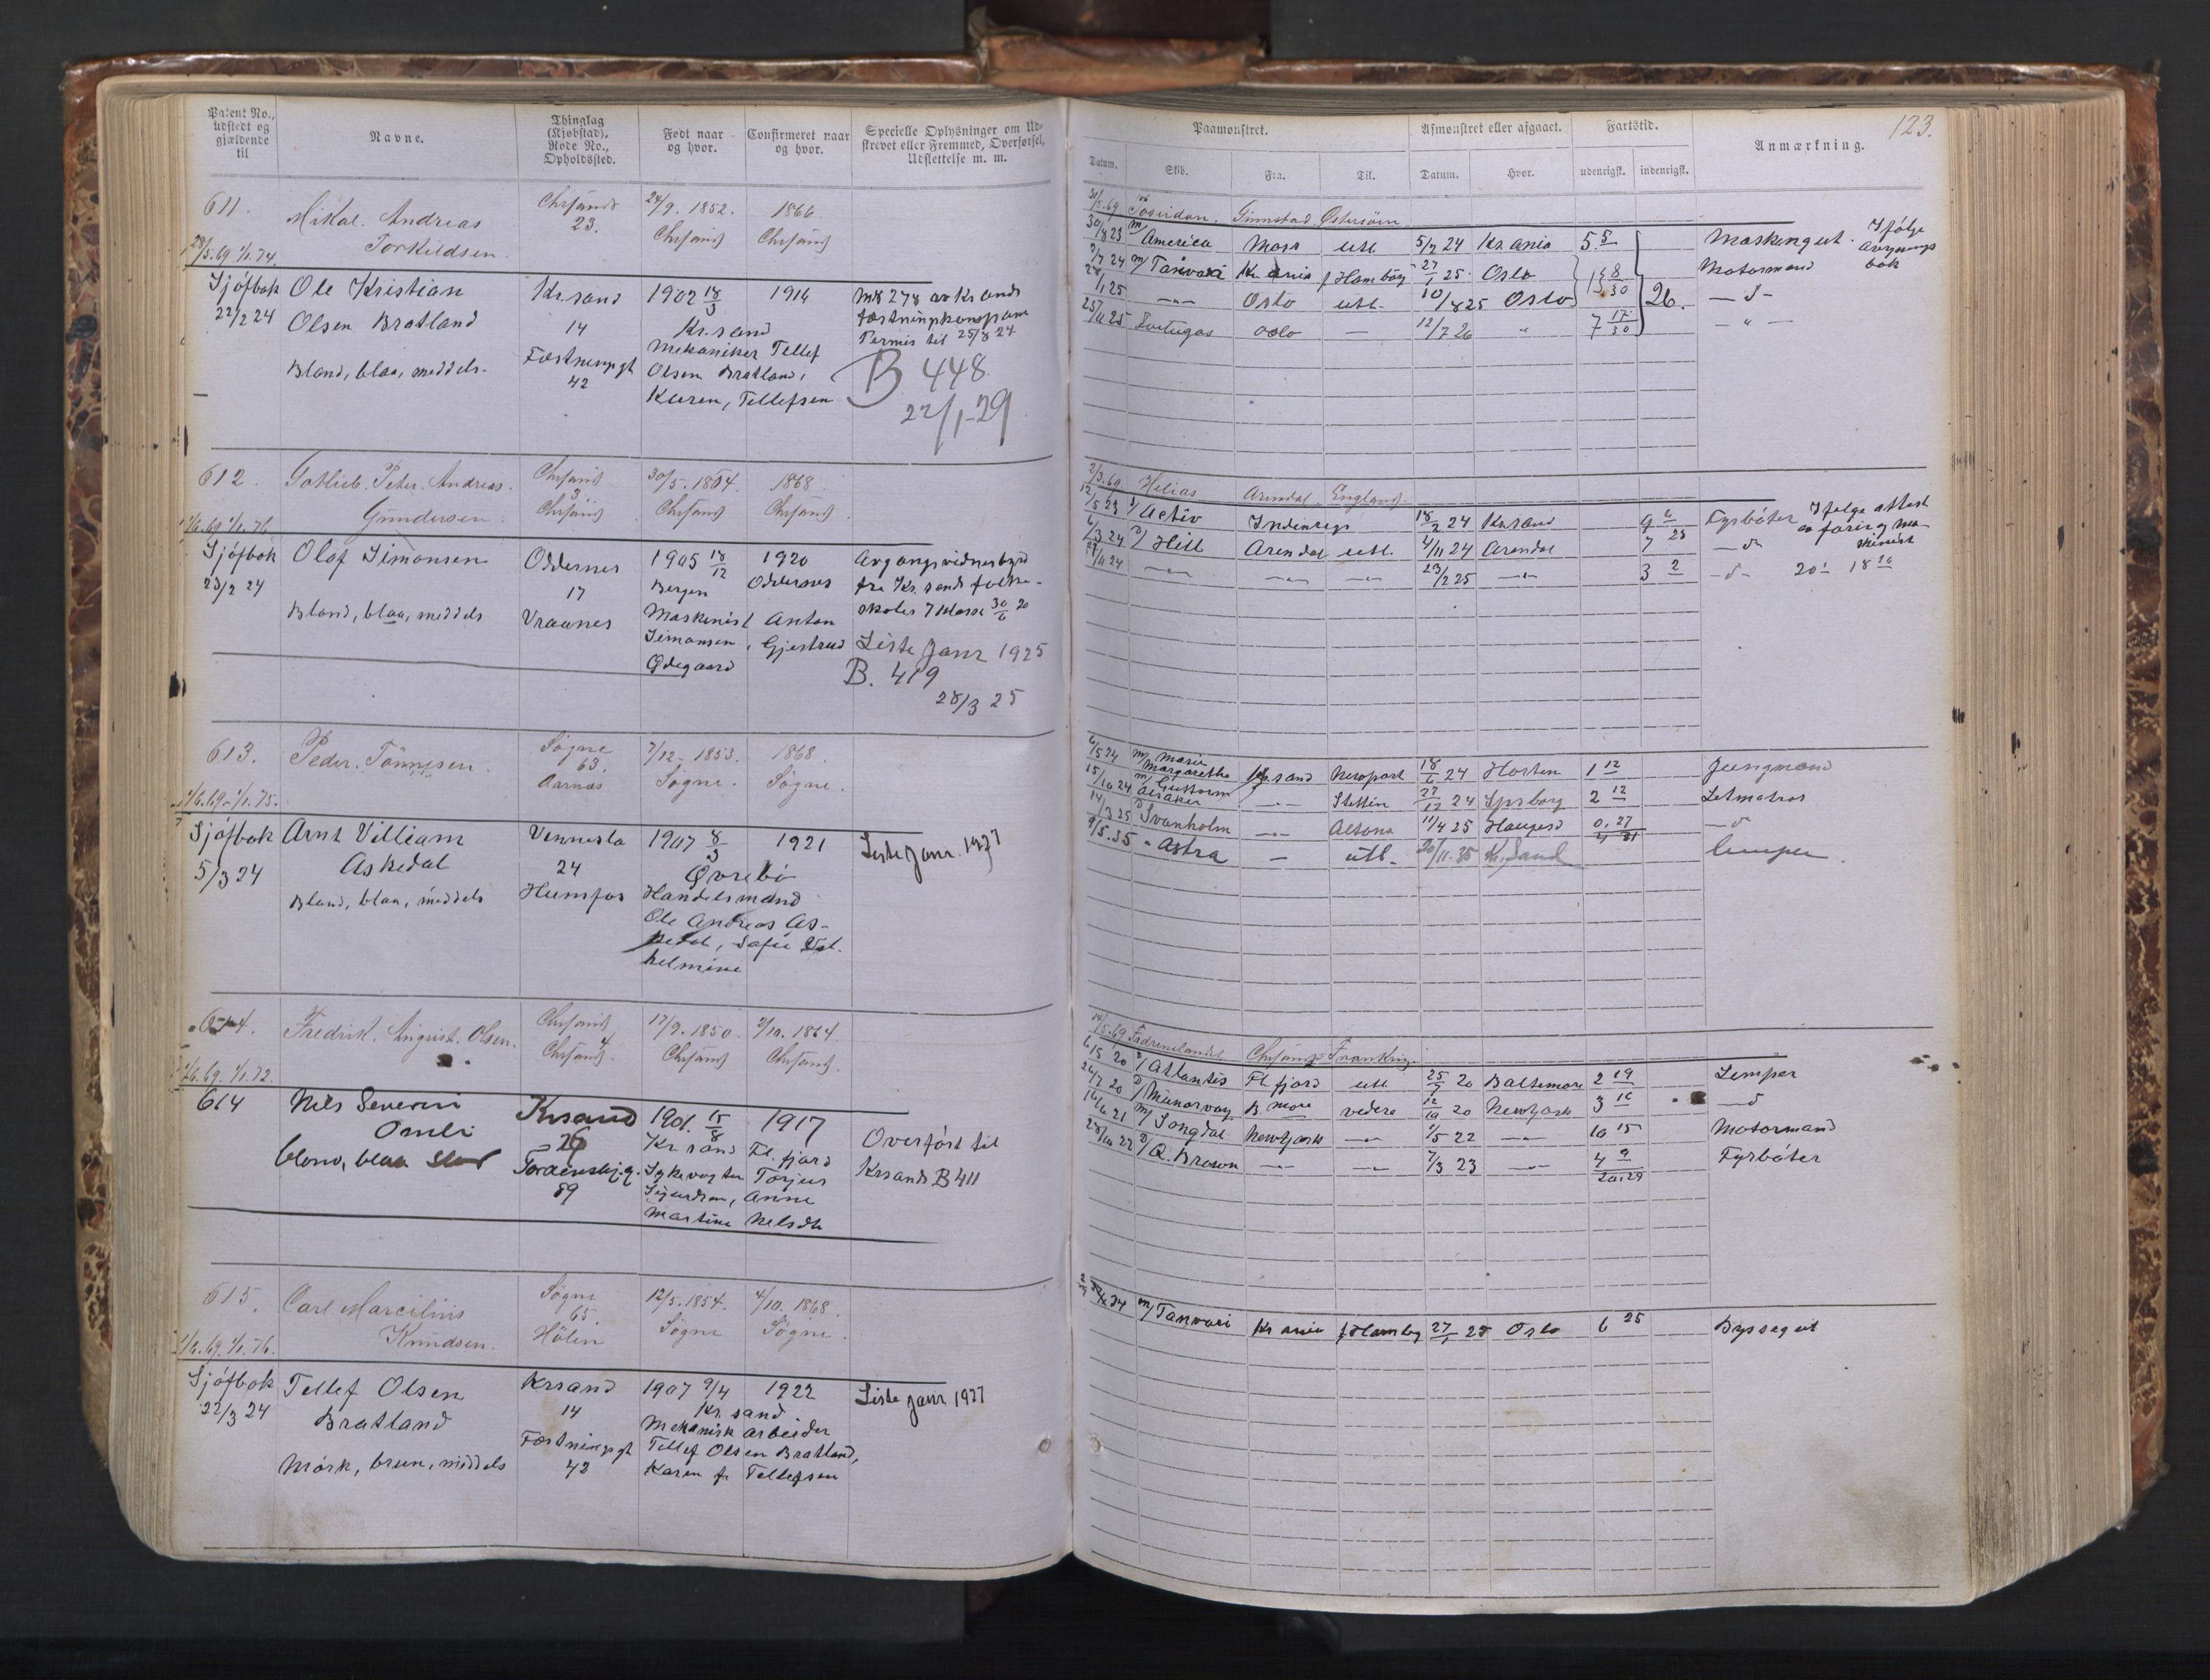 Patent No., udstedt og gjældende til
Navne.
Thinglag (Kjøbstad), Rode No., Opholdssted.
Født naar og hvor.
Confirmeret naar og hvor.
Specielle Oplysninger om Udskrevet eller Fremmed, Overførsel, Udslettelse m. m.
611.
Mikal. Andreas
Torkildsen.
Chrsand
23.
24/9. 1852.
Chrsand
1866
Chrsand
28/5.69 1/1.74.
Sjøfbok
22/2 24
Ole Kristian
Olsen Bratland
Blond, blaa, middels-
Kr.sand
14
Fæstningsgt
42
1902 18/3
Kr.sand
1916
Mekaniker Tellef
Olsen Bratland,
Karen, Tellefsen
Permis til 25/8 24
B 448
22/1-29
612.
Gotlieb. Peter. Andreas.
Gundersen.
Chrsand
3
Chrsand
30/5. 1854.
Chrsand
1868.
Chrsand
1/6.69 1/1.76
Sjøfbok
23/2 24
Olaf Simonsen
Blond, blaa, middels
Oddernes
17
Vraanes
1905 18/12
Bergen
1920
Oddernes
Maskinist Anton
Simonsen, Gjestrud
Ødegaard
Avgangsvidnesbyrd
fra Kr.sands folke-
skoles 7 klasse 30/6 20
Liste Janr 1925
B. 419
28/3 25
613.
Peder. Tönnesen.
Søgne
63.
Aarnæs
7/12. 1853.
Søgne.
1868.
Søgne.
1/6.69-1/1.75.
Sjøfbok
5/3 24
Arnt Villiam
Askedal
Blond, blaa, middels
Vennesla
24
Hunsfos
1907 8/3
Øvrebö
1921
Handelsmand
Ole Andreas As-
kedal, Sofie Vil-
helmine
Liste Janr. 1927
614.
Fredrik. August. Olsen.
Chrsand
4
Chrsand.
17/9. 1850.
Chrsand
2/10. 1864.
Chrsand.
1/6.69. 1/1.72.
614
Nils Severin
Omli
blond, blaa
Krsand
26
Tordenskj.g.
89
1901. 15/8
Kr sand
1917
Fl. fjord
Sykevogter Torjus
Sigurdsen, Anne
Martine Nelsdtr
Overført til
Krsand B 411
615.
Carl Marcilius
Knudsen.
Søgne
65.
Hölen
12/5. 1854.
Søgne
4/10. 1868.
Søgne.
1/6.69. 1/1.76.
Sjøfbok
22/3 24
Tellef Olsen
Bratland
Mørk, brun, middels
Krsand
14
Fæstningsgt
42
1907 9/4
Kr.sand
1922
Mekanisk arbeider
Tellef Olsen Bratland,
Karen f. Tellefsen
Liste Janr 1927
123.
Paamønstret.
Afmønstret eller afgaaet.
Fartstid.
Anmærkning.
Datum.
Skib.
Fra.
Til.
Datum.
Hvor.
udenrigsk.
indenrigsk.
31/5.69 Poseidon. Grimstad Østersöen
30/8 23 m/ America Moss utl. 5/2 24 Kr.ania 5 5 Maskingut. Ifølge
m/ Tanvari Kr ania f Hamburg 27/1 25 Oslo Motormand
1/25 Oslo utl. 10/8 25 Oslo
Portugas oslo 12/7 26 7 17/30
26.
2/3.69 Helias Arendal England.
12/5 23 Activ Indenrigs 18/2 24 Kr.sand 9 6 Fyrbøter Ifølge attest
6/3 24 D/ Hill Arendal utl. 4/11 24 Arendal 7 28
/11 24 23/2 25 3 2
6/5 24 m/ Marie Margarethe Kr.sand Newport 18/6 24 Horten 1 12 Jungmand
15/10 24 m/ Guttorm Stettin 27/12 24 Sprborg 2 12 Letmatros
14/3 25 D Svanholm Altona 11/4 25 Haugesd 0.27
9/5.35 Astra utl. 20/11.35 Kr.Sand lemper.
14/5.69 Fædrenelandet Chrsand Frankrig
D/ Atlantis Fl.fjord utl 25/7 20 Baltimore 2 19 Lemper
24/7 20 D/ Munorway B more videre 12/10 20 NewYork 3 16
m/ Songdal NewYork 1/5 22 10 15 Motormand
D/ Q. Brown 7/3 23 4 9 Fyrböter
20.29
m/ Tanvari Kr ania f Hamburg 27/1 25 Oslo 6 25 Byssegut